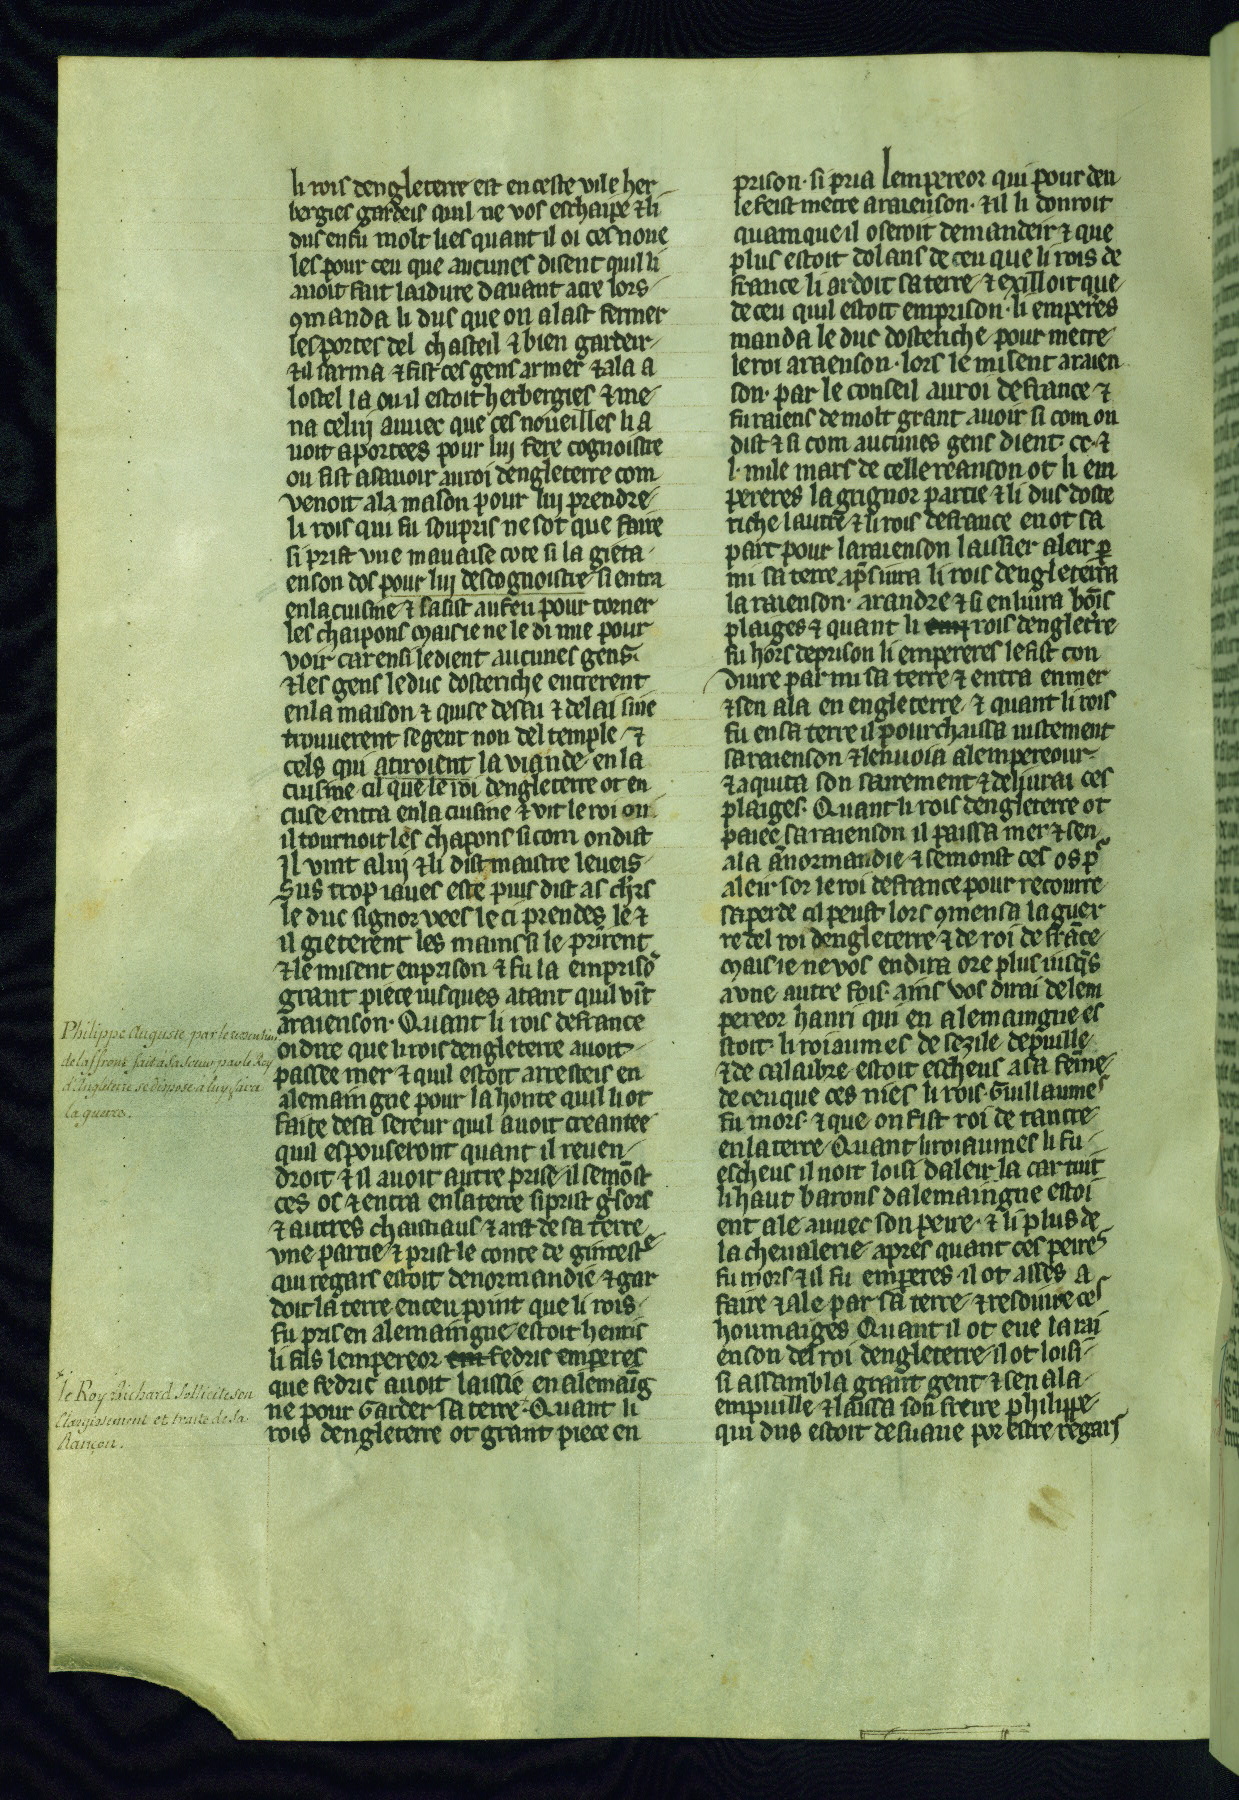 li rois dengleterre est en ceste vile her
bergies gardeis quil ne vos eschaipe ⁊ li
dus en fu molt lies quant il oi ces noue
les pour ceu que aucunes disent quil li
auoit fait laidure dauant acre lors
ꝯmanda li dus que on alast fermer
les portes del chasteil ⁊ bien gardeir
⁊ il sarma ⁊ fist ces gens armer ⁊ ala a
lostel la ou il estoit herbergies ⁊ me
na celuj auuec que ces noueilles li a
uoit aportees pour luj fere cognoistre
on fist asauoir au roi dengleterre com
venoit ala maison pour luj prendre
li rois qui fu soupris ne sot que faire
si prist vne mauaise cote si la gieta
en son dos pour luj descognoistre si entra
en la cuisine ⁊ sasist au feu pour torner
les chaipons mais ie ne le di mie pour
voir car ensi le dient aucunes gens
⁊ les gens le duc dosteriche entrerent
en la maison ⁊ quise desai ⁊ delai si ne
trouuerent se gent non del temple ⁊
cels qui atiroient la viande en la
cuisine cil que le roi dengleterre ot en
cuse entra en la cuisine ⁊ vit le roi ou
il tournoit les chapons si com on dist
Il vint a luj ⁊ li dist maistre leueis
sus trop iaues este puis dist as chrs
le duc signor vees le ci prendes le ⁊
il gieterent les mains si le prirent
⁊ le misent en prison ⁊ fu la en prisō
grant piece iusques atant quil vīt
araienson. Quant li rois de france
oi dire que li rois dengleterre auoit
passee mer ⁊ quil estoit arresteis en
alemaingne pour la honte quil li ot
faite de sa sereur quil auoit creantee
quil espouseroit quant il reuen
droit ⁊ il auoit autre prise il semōst
ces os ⁊ entra en sa terre si prist gisors
⁊ autres chaistiaus ⁊ arst de sa terre
vne partie ⁊ prist le conte de
qui regars estoit de normandie ⁊ gar
doit la terre en ceu point que li rois
fu pris en alemaingne estoit henris
li fils lempereor fedric emperes
que fedric auoit laissie en alemaīg
ne pour garder sa terre. Quant li
rois dengleterre ot grant piece en
prison. si pria lempereor qui pour deu
le feist metre araienson. ⁊ il li donroit
quamque il oseroit demandeir ⁊ que
plus estoit dolans de ceu que li rois de
france li ardoit sa terre ⁊ exilloit que
de ceu quil estoit en prison. li emperes
manda le duc dosteriche pour metre
le roi araenson. lors le misent araien
son. par le conseil au roi de france ⁊
fu raiens de molt grant auoir si com on
dist ⁊ si com aucunes gens dient. cc. ⁊
l. mile mars de celle reanson ot li em
pereres la grignor partie ⁊ li dus doste
riche lautre ⁊ li rois de france en ot sa
part pour la raienson laissier aleir ꝑ
mi sa terre liura li rois dengleterra
la raienson. arandre ⁊ si en liura bōis
plaiges ⁊ quant li rois dengletere
fu hors de prison li empereres le fist con
duire par mi sa terre ⁊ entra en mer
⁊ sen ala en engleterre. ⁊ quant li rois
fu en sa terre il pourchaissa iustement
sa raienson ⁊ lenuoia a lempereour
⁊ aquita son sairement ⁊ deliurai ces
plaiges. Quant li rois dengleterre ot
paiee sa raienson il paissa mer ⁊ sen
ala ā normandie ⁊ semonst ces os pꝰ
aleir sor le roi de france pour recoure
sa perde cil peust. lors ꝯmensa la guer
re del roi dengleterre ⁊ de roi de frāce
mais ie ne vos en dira ore plus iusqs̄
a vne autre fois. ains vos dirai de lem
pereor hanri qui en alemaingne es
stoit. li roiaumes de sezile de puille
⁊ de calaibre estoit escheus a sa fēme
de ceu que ces nies li rois Guillaumes
fu mors. ⁊ que on fist roi de tancre
en la terre. Quant li roiaumes li fu
escheus il noit loisi daleir la car tuit
li haut barons dalemaingne estoi
ent ale auuec son peire. ⁊ li plus de
la cheualerie. apres quant ces peires
fu mors ⁊ il fu emperes il ot asses a
faire ⁊ ale par sa terre ⁊ resoiure ces
houmaiges Quant il ot eue la rai
enson del roi dengleterre il ot loisi
si assambla grant gent ⁊ sen ala
en puille ⁊ laissa son freire philippe
qui dus estoit de suaue por estre regars
Philippe Auguste par le ressentiment
de laffront fait a sa soeur par le Roy
d'Angleterre se dispose a luy faire
la guerre.
le Roy Richard sollicite son
Elargissement et traite de sa
Rançon.